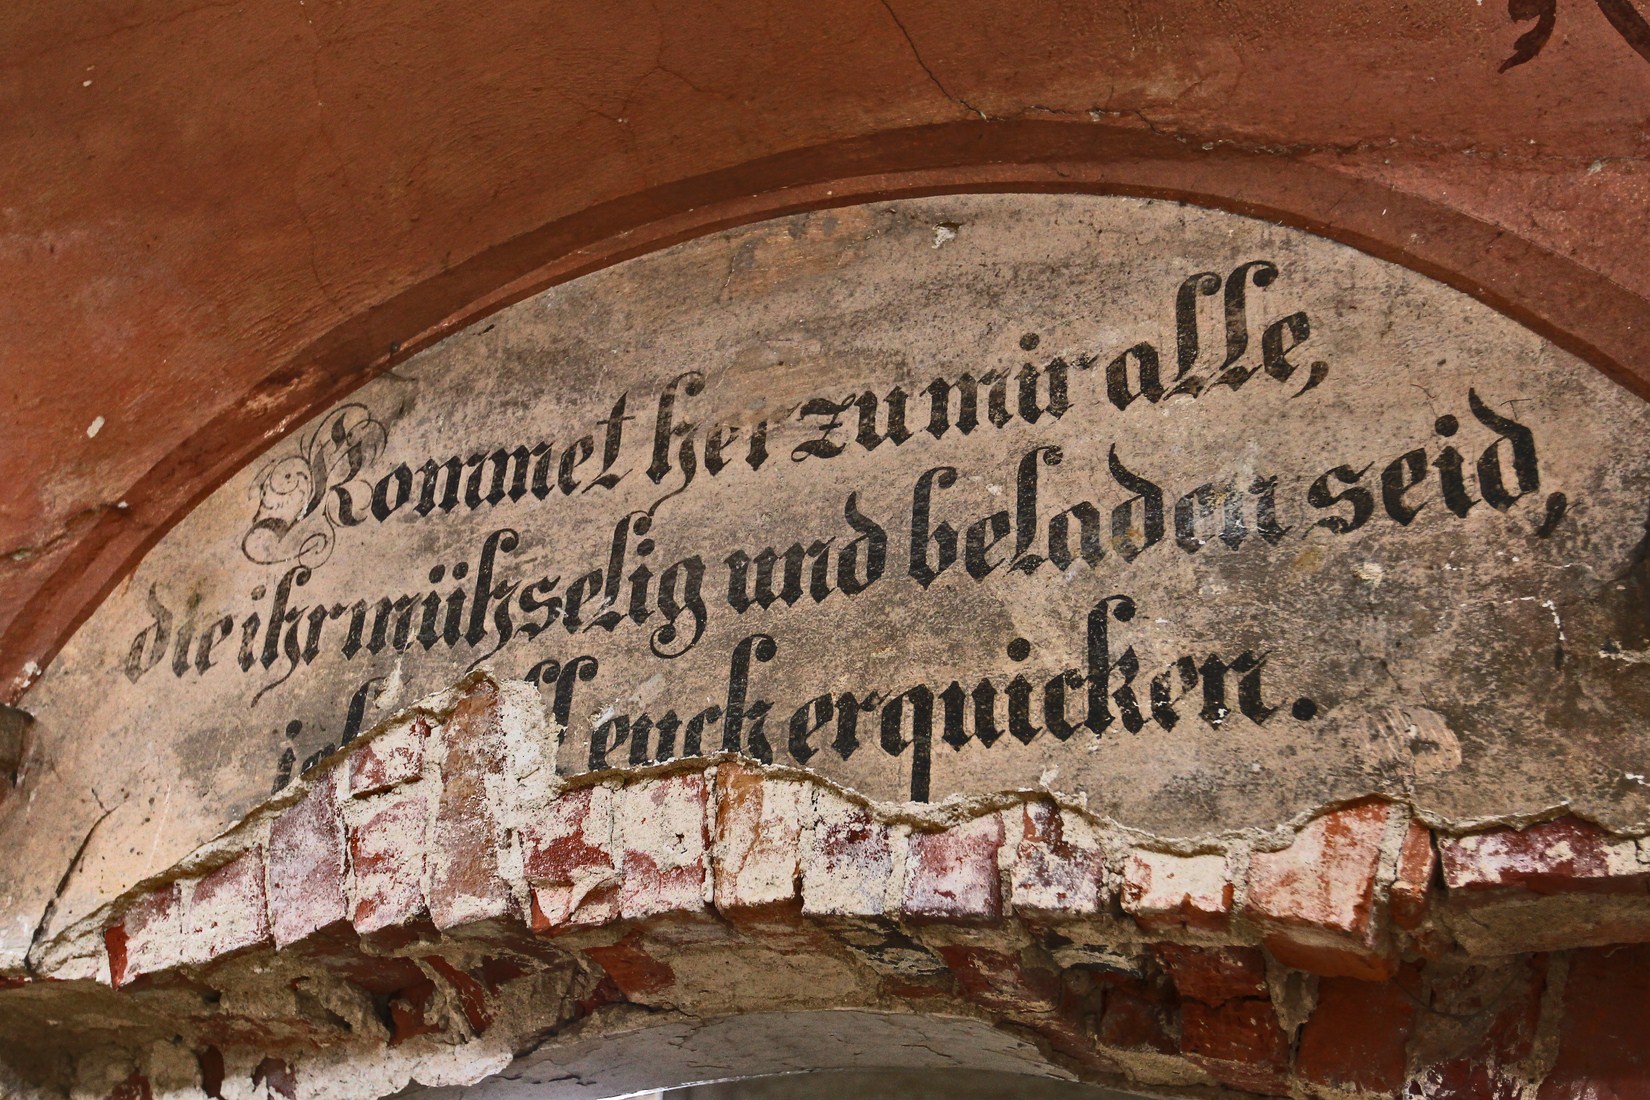 Kommet her zu mir alle,
die ihr mühselig und beladen seid,
ich euch erquicken.